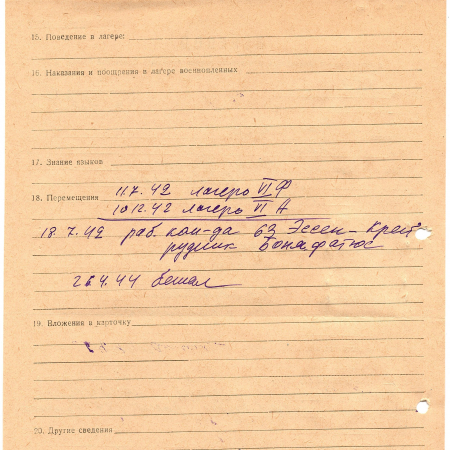 15. Поведение в лагере:
16. Наказания и поощрения в лагере военнопленных
17. Знание языков
18. Перемещения 11.7.42 лагерь VI Ф
10.12.42 лагерь VI А
18.7.42 раб. ком-да 63 Эссен-Крей
рудник Бонафатюс
26.4.44 бежал
19. Вложения в карточку
20. Другие сведения